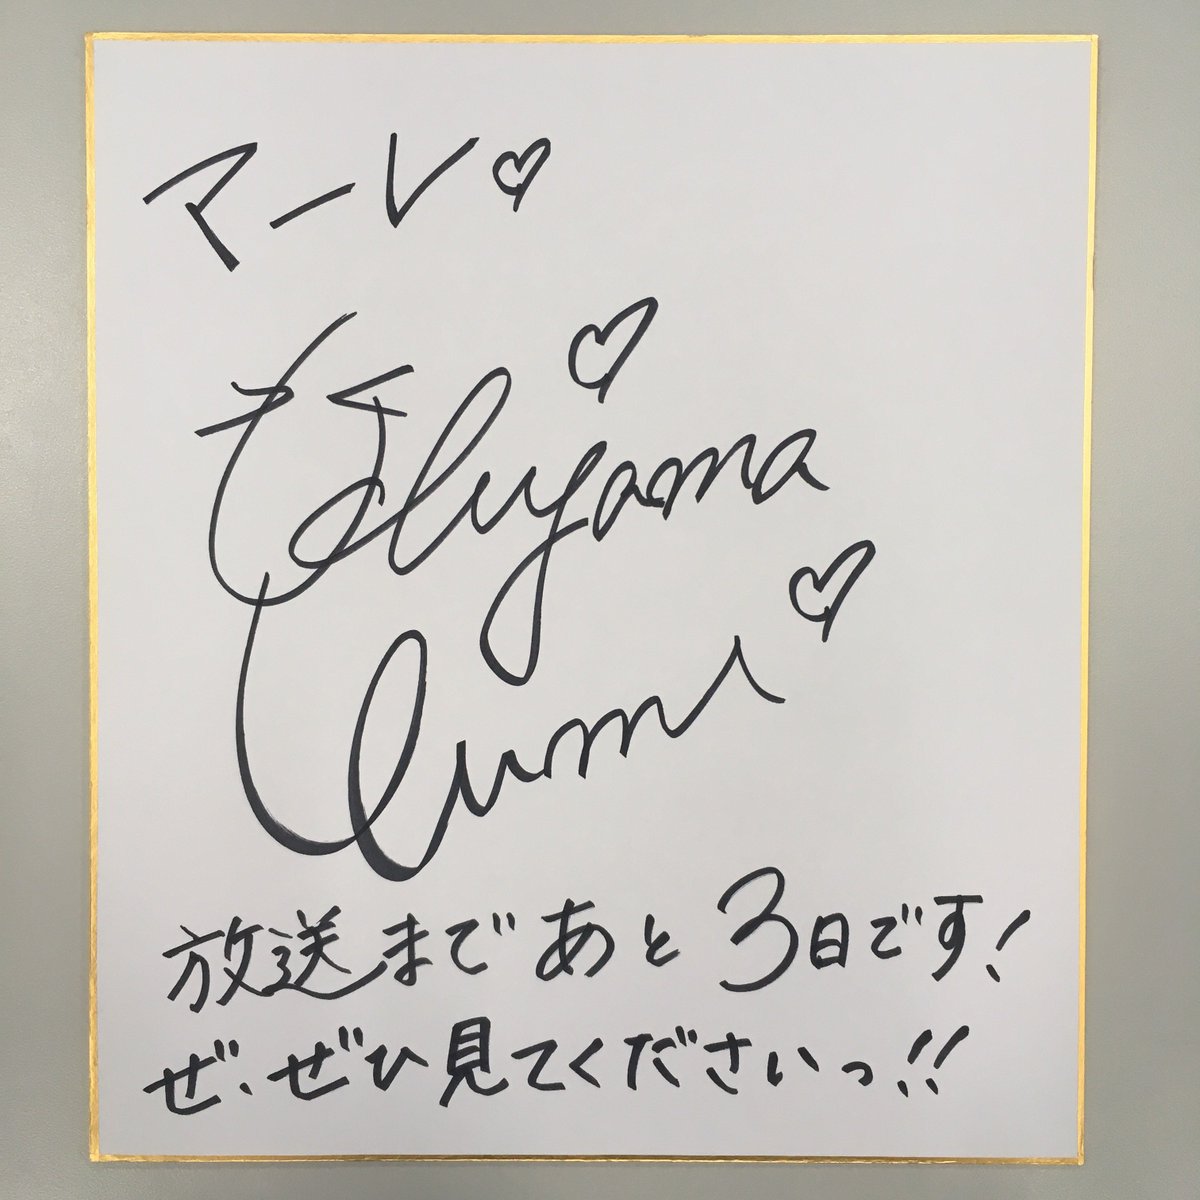 マーレ♡
Uchiyama♡
Yumi♡
放送まであと3日です!
ぜ、ぜひ見てくださいっ!!